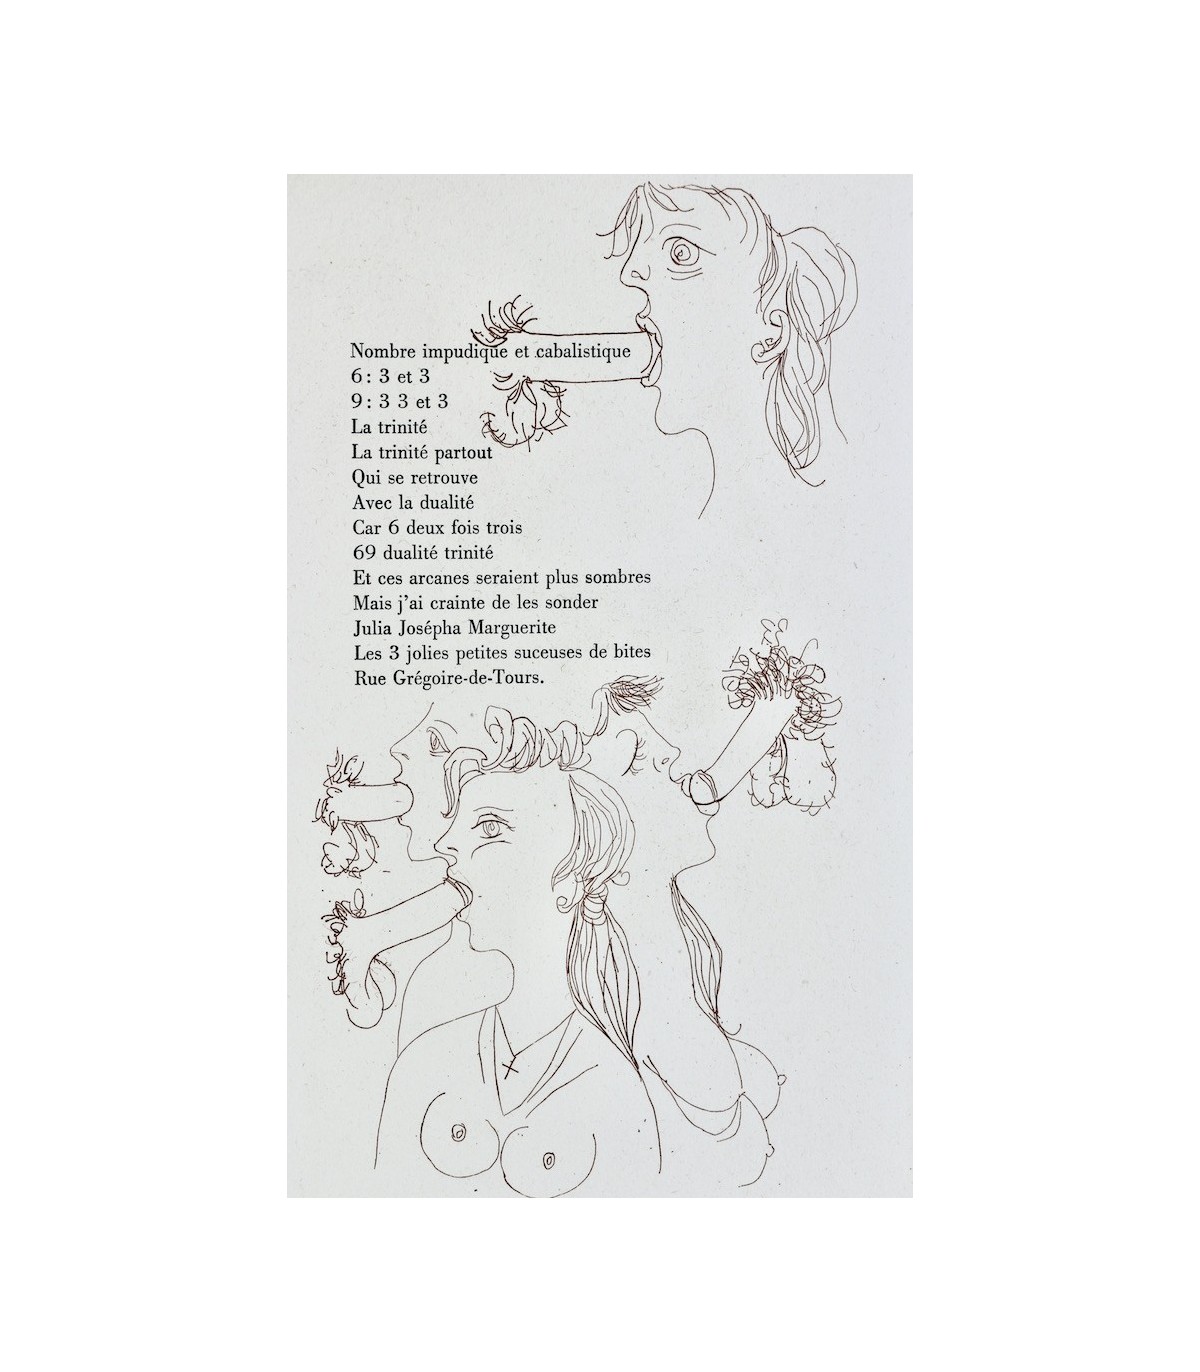 Nombre impudique et cabalistique
6 : 3 et 3
9 : 3 3 et 3
La trinité
La trinité partout
Qui se retrouve
Avec la dualité
Car 6 deux fois trois
69 dualité trinité
Et ces arcanes seraient plus sombres
Mais j'ai crainte de les sonder
Julia Josépha Marguerite
Les 3 jolies petites suceuses de bites
Rue Grégoire-de-Tours.